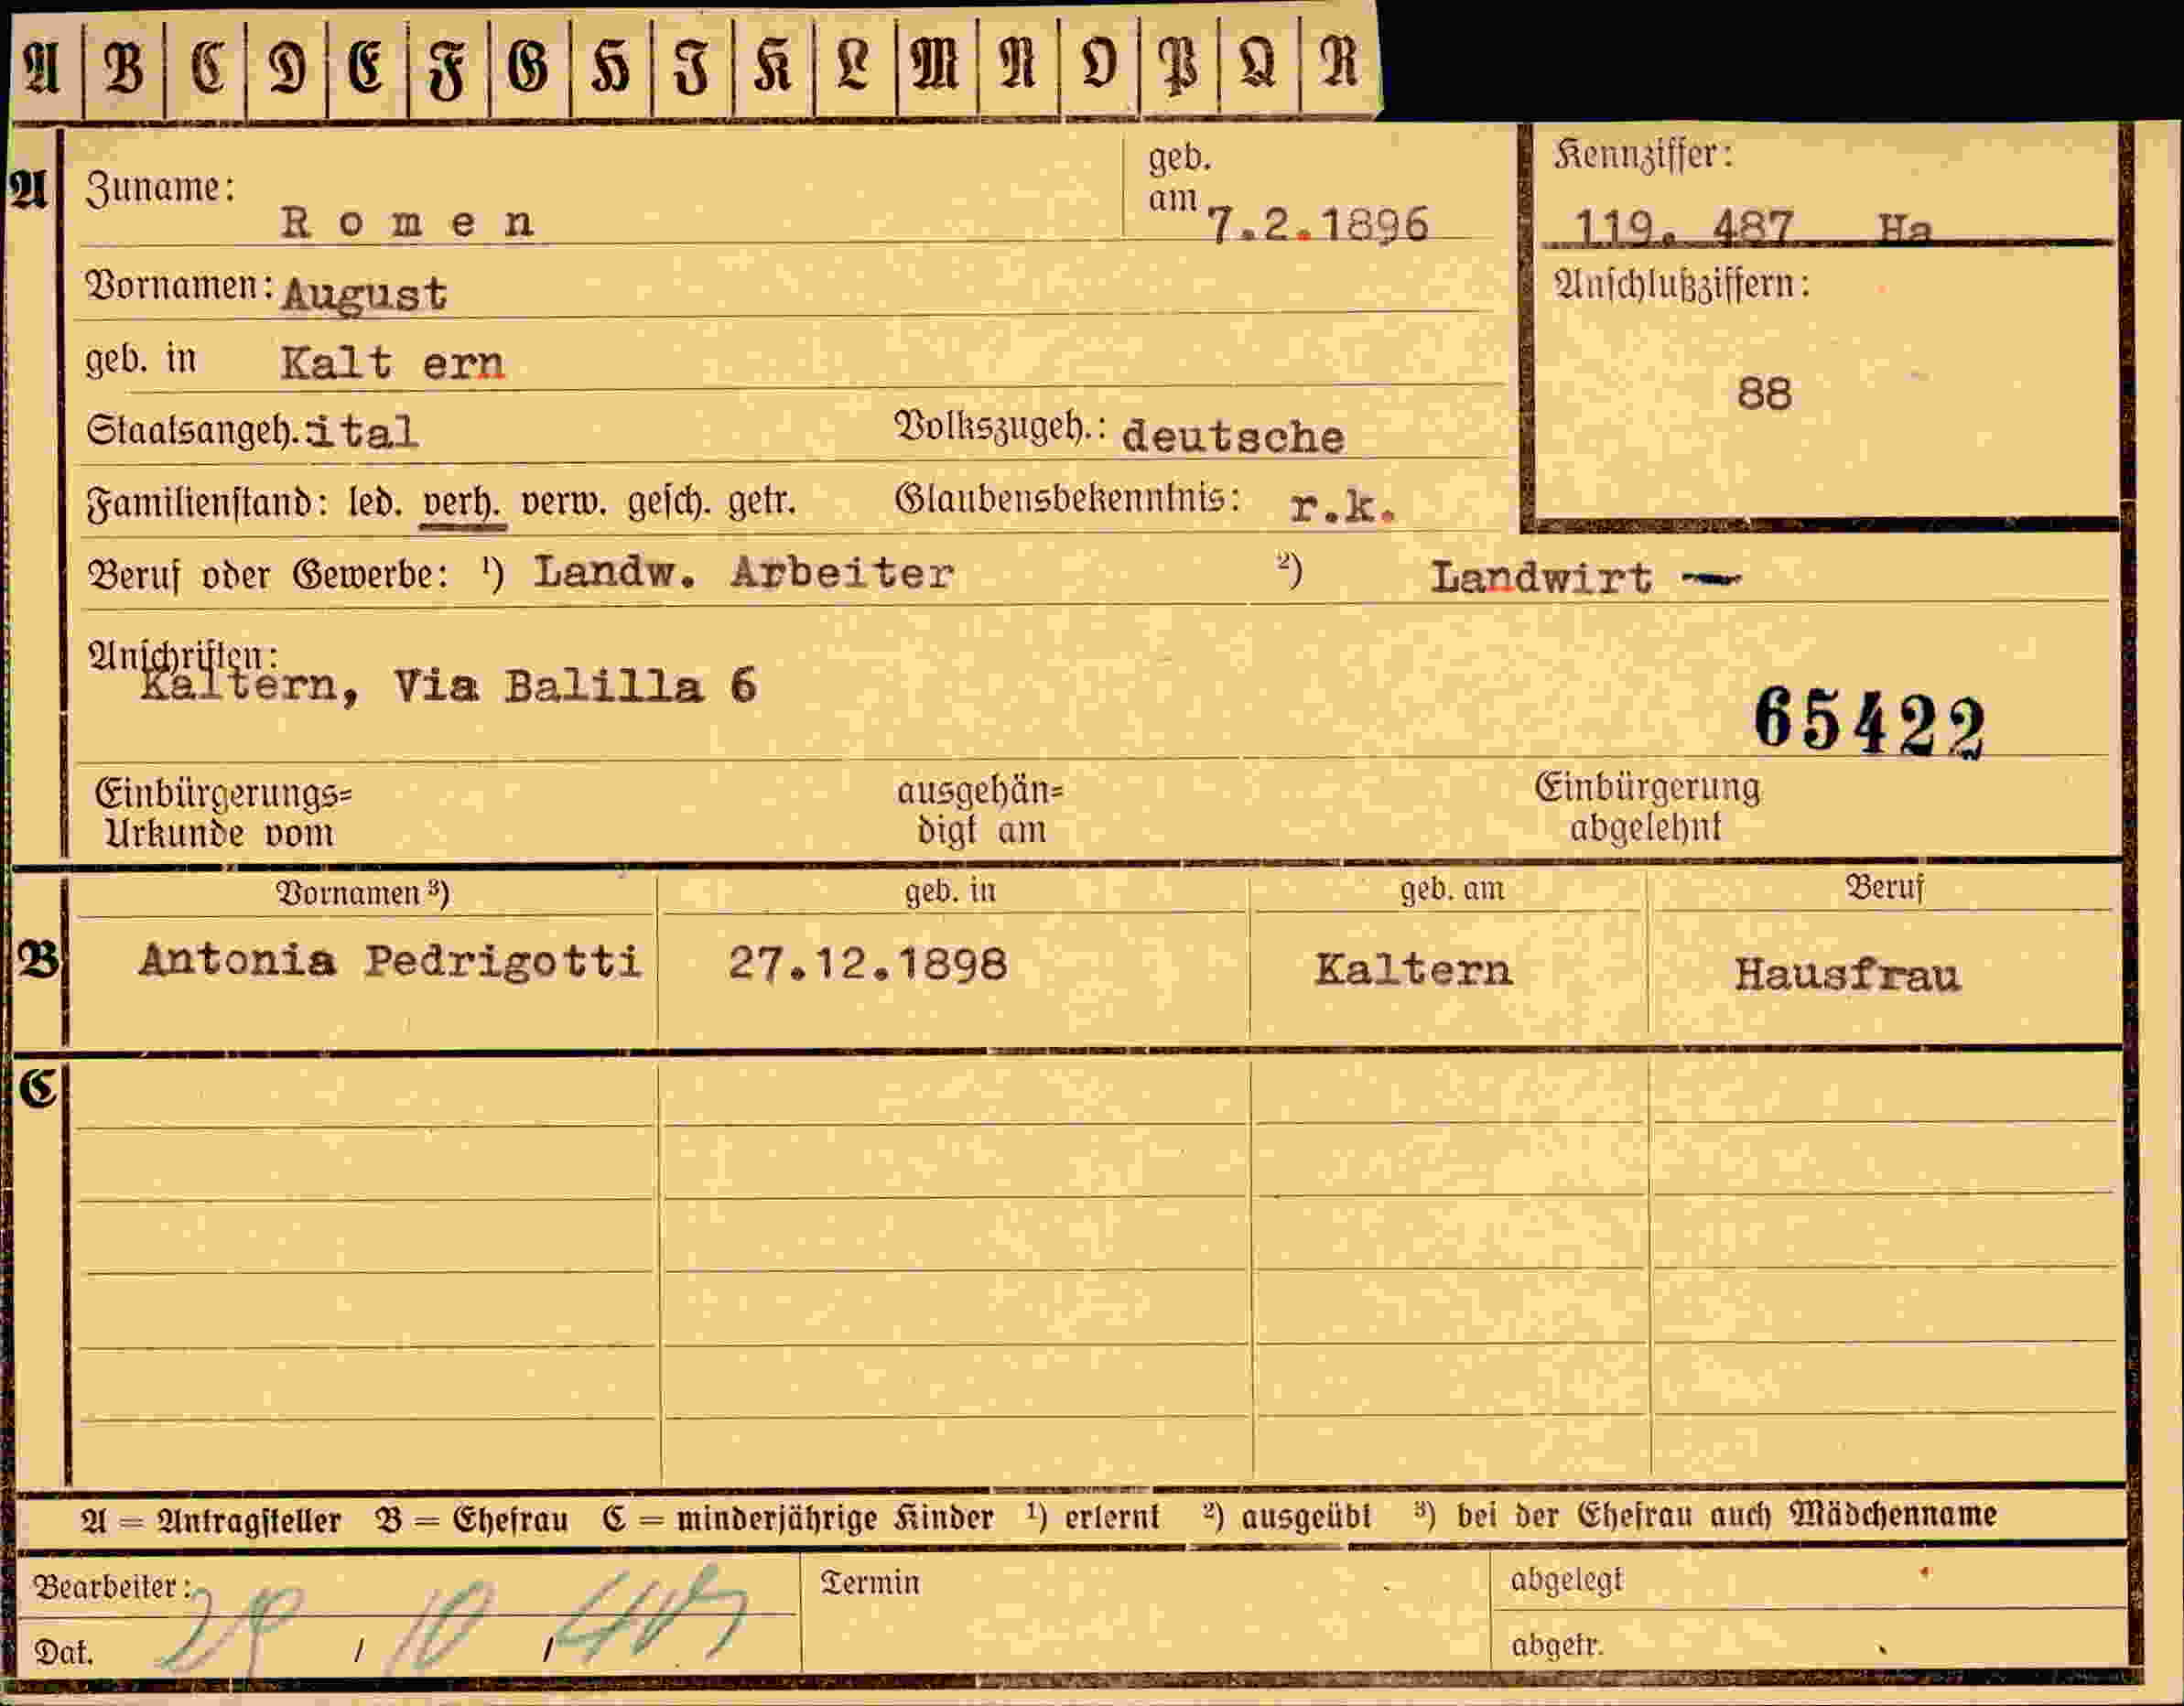 A B C D E F G H I K L M N O P Q R
A
Zuname: Romen
geb. am 7.2.1896
Kennziffer:
119. 487 Ha
Vornamen: August
Anschlußziffern:
88
geb. in Kalt ern
Staatsangeh. ital Volkszugeh.: deutsche
Familienstand: led. verh. verw. gesch. getr. Glaubensbekenntnis: r.k.
Beruf oder Gewerbe: ¹) Landw. Arbeiter ²) Landwirt —
Anschriften:
Kaltern, Via Balilla 6
65422
Einbürgerungs= ausgehän= Einbürgerung
Urkunde vom digt am abgelehnt
Vornamen ³) geb. in geb. am Beruf
B Antonia Pedrigotti 27.12.1898 Kaltern Hausfrau
C
A = Antragsteller B = Ehefrau C = minderjährige Kinder ¹) erlernt ²) ausgeübt ³) bei der Ehefrau auch Mädchenname
Bearbeiter: Termin abgelegt
Dat. / 10 / abgetr.